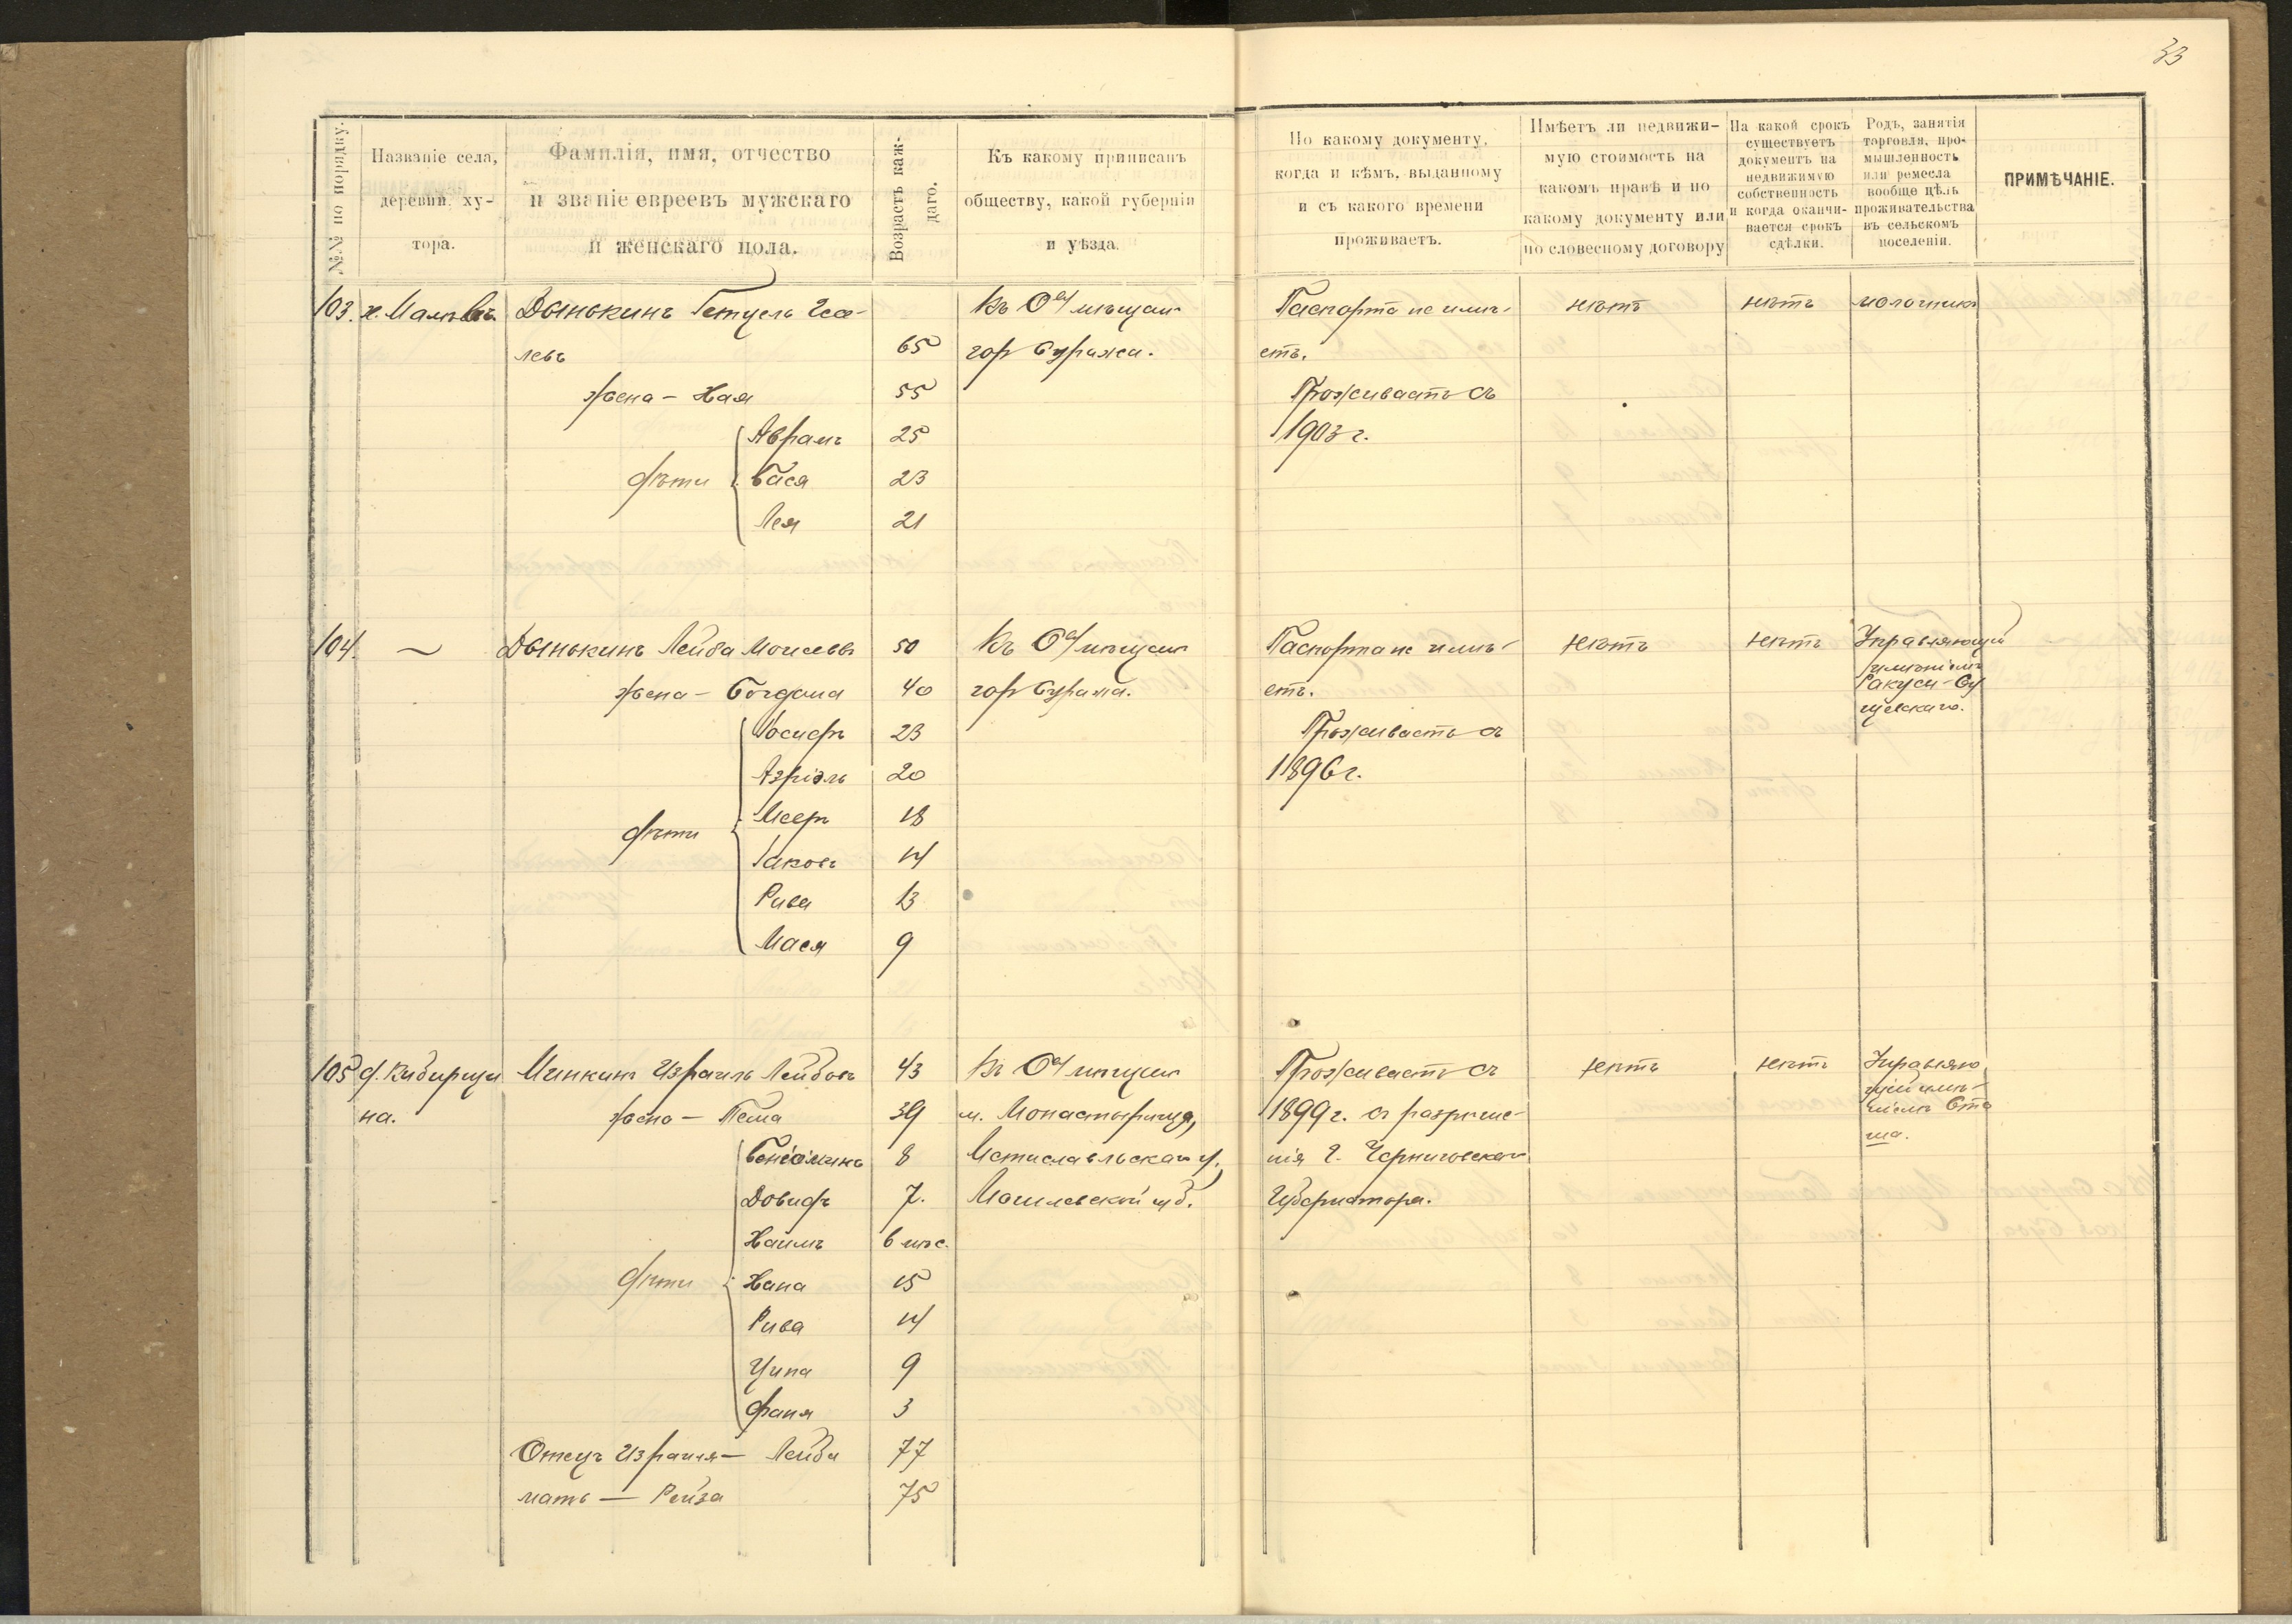 33
№№ по порядку.
Названіе села, деревни, хутора.
Фамилія, имя, отчество
и званіе евреевъ мужскаго
и женскаго пола.
Возрастъ каждаго.
Къ какому приписанъ
обществу, какой губерніи
и уѣзда.
По какому документу,
когда и кѣмъ, выданному
и съ какого времени
проживаетъ.
Имѣетъ ли недвижи-
мую стоимость на
какомъ правѣ и по
какому документу или
по словесному договору
На какой срокъ
существуетъ
документъ на
недвижимую
собственность
и когда оканчи-
вается срокъ
сдѣлки.
Родъ, занятія
торговля, про-
мышленность
или ремесла
вообще цѣль
проживательства
въ сельскомъ
поселеніи.
ПРИМѢЧАНІЕ.
103. х. Дынькинъ Гецель Іосе- Къ О-ву мѣщан Паспорта не имѣ- нѣтъ нѣтъ молочникъ
левъ 65 гор Суража. етъ.
жена - Хая 55 Проживаетъ съ
Аврамъ 25 1903 г.
дѣти Бася 23
Лея 21
104. ~ Дынькинъ Лейба Моисеевъ 50 Къ О-ву мѣщан Паспорта не имѣ- нѣтъ нѣтъ Управляющій
имѣніемъ
жена - Богдана 40 гор Суража. етъ. Ракуси-Су
щевскаго.
Іосифъ 23 Проживаетъ съ
Азріэль 20 1896 г.
дѣти Мееръ 18
Іаковъ 14
Рива 13
Мася 9
105 д. Кибирщи Минкинъ Израиль Лейбовъ 43 Къ О-ву мѣщан Проживаетъ съ нѣтъ нѣтъ Управляю
щій имѣ-
на. жена - Тема 39 м. Монастырища, 1899 г. съ разрѣше- ніемъ Ста
ша.
Беніаминъ 8 Мстиславльскаго у. нія Г. Черниговскаго
Довидъ 7. Могилевской губ. Губернатора.
Хаимъ 6 мѣс.
дѣти Хана 15
Рива 14
Ципа 9
Фаня 3
Отецъ Израиля - Лейба 77
мать - Рейза 75